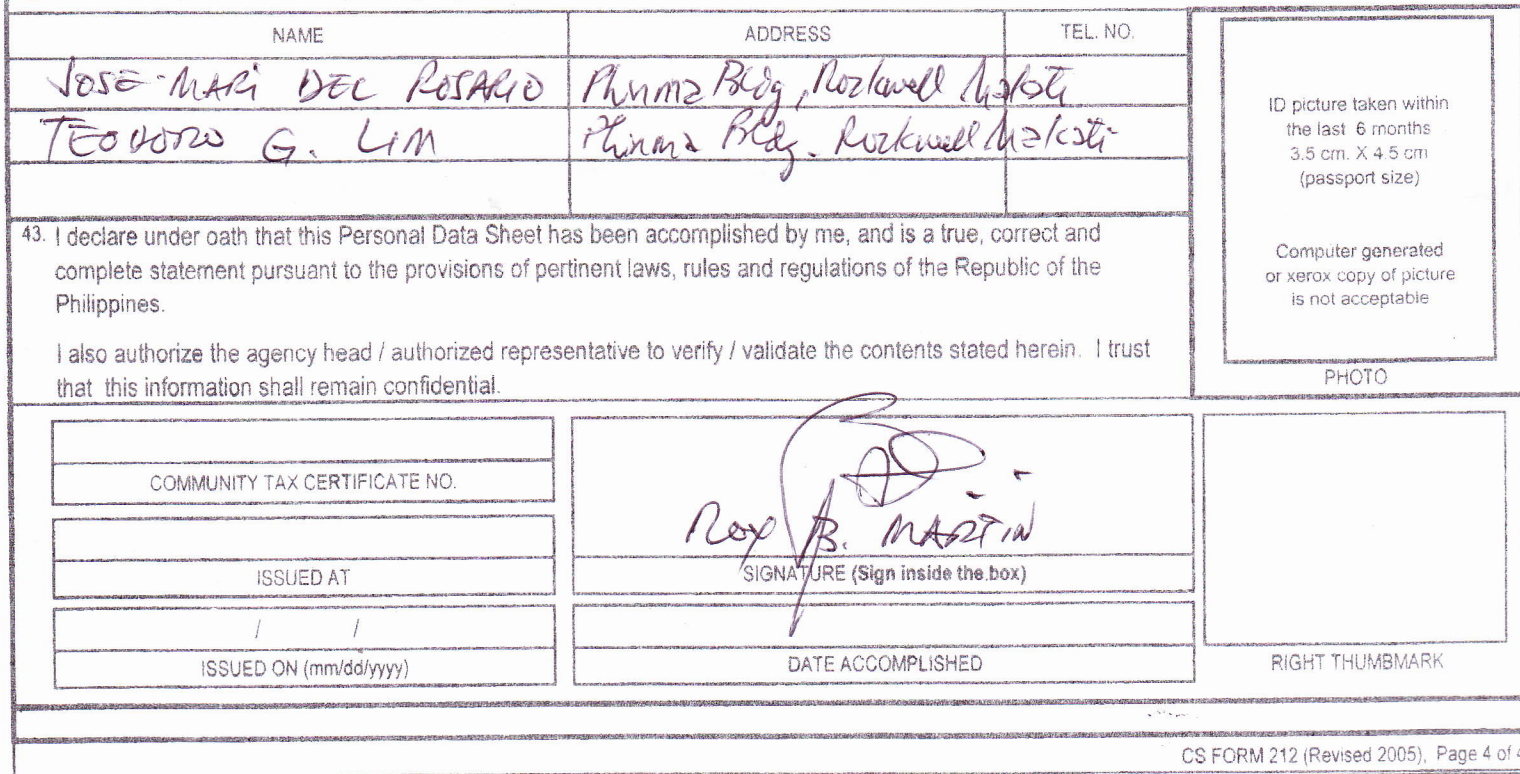 NAME ADDRESS TEL. NO.
JOSE-MARI DEL ROSARIO Phinma Bldg, Rockwell Makati
TEODORO G. LIM Phinma Bldg. Rockwell Makati
ID picture taken within
the last 6 months
3.5 cm. X 4.5 cm
(passport size)
Computer generated
or xerox copy of picture
is not acceptable
PHOTO
43. I declare under oath that this Personal Data Sheet has been accomplished by me, and is a true, correct and
complete statement pursuant to the provisions of pertinent laws, rules and regulations of the Republic of the
Philippines.
I also authorize the agency head / authorized representative to verify / validate the contents stated herein. I trust
that this information shall remain confidential.
COMMUNITY TAX CERTIFICATE NO.
ISSUED AT
/ /
ISSUED ON (mm/dd/yyyy)
Roy B. MARTIN
SIGNATURE (Sign inside the box)
DATE ACCOMPLISHED
RIGHT THUMBMARK
CS FORM 212 (Revised 2005), Page 4 of 4